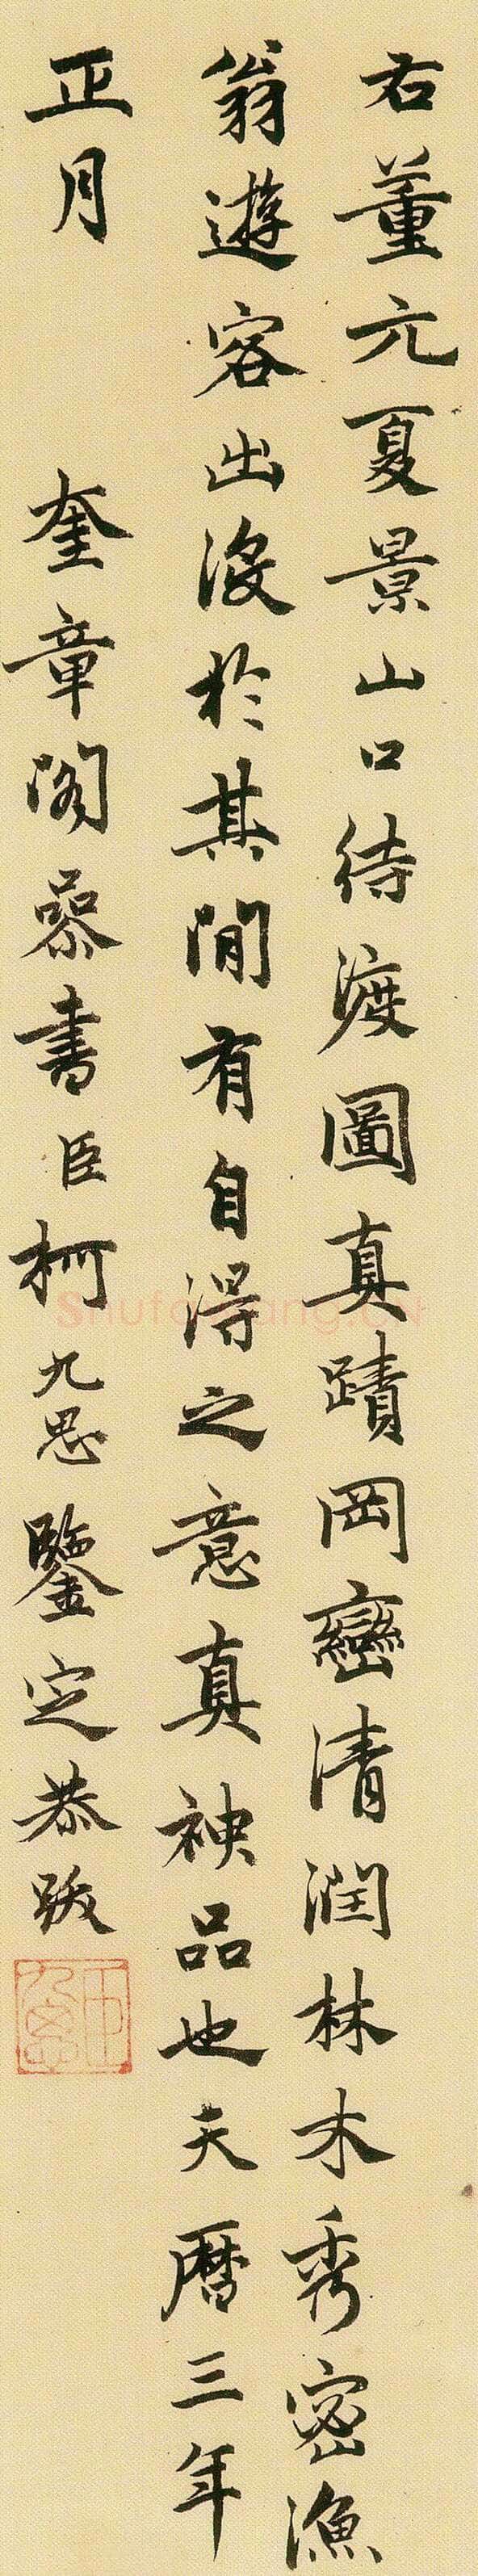 右董元夏景山口待渡圖真蹟岡巒清潤林木秀密漁
翁遊客出没於其間有自得之意真神品也天曆三年
正月　奎章閣叅書臣柯九思鑒定恭跋